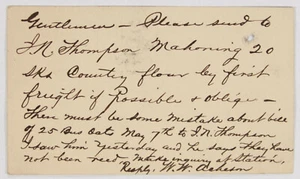 Gentlemen – Please send to
J. R. Thompson Mahoning 20
sks Country flour by first
freight if Possible & oblige –
There must be some mistake about bill
of 25 Bus Oats May 7th to J. R. Thompson
I saw him yesterday and he says they have
not been recd, make inquiry at Station,
Resply, W. W. Acheson